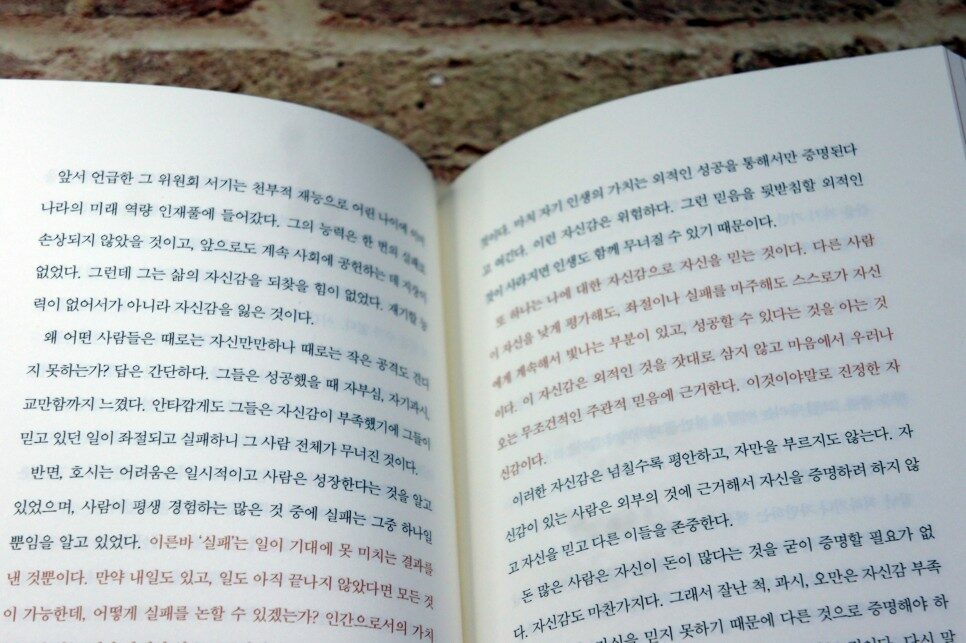 앞서 언급한 그 위원회 서기는 천부적 재능으로 어린 나이에 이미
나라의 미래 역량 인재풀에 들어갔다. 그의 능력은 한 번의 실패로
손상되지 않았을 것이고, 앞으로도 계속 사회에 공헌하는 데 지장이
없었다. 그런데 그는 삶의 자신감을 되찾을 힘이 없었다. 재기할 능
력이 없어서가 아니라 자신감을 잃은 것이다.
왜 어떤 사람들은 때로는 자신만만하나 때로는 작은 공격도 견디
지 못하는가? 답은 간단하다. 그들은 성공했을 때 자부심, 자기과시,
교만함까지 느꼈다. 안타깝게도 그들은 자신감이 부족했기에 그들이
믿고 있던 일이 좌절되고 실패하니 그 사람 전체가 무너진 것이다.
반면, 호시는 어려움은 일시적이고 사람은 성장한다는 것을 알고
있었으며, 사람이 평생 경험하는 많은 것 중에 실패는 그중 하나일
뿐임을 알고 있었다. 이른바 ‘실패’는 일이 기대에 못 미치는 결과를
낸 것뿐이다. 만약 내일도 있고, 일도 아직 끝나지 않았다면 모든 것
이 가능한데, 어떻게 실패를 논할 수 있겠는가? 인간으로서의 가치
것이다. 마치 자기 인생의 가치는 외적인 성공을 통해서만 증명된다
고 여긴다. 이런 자신감은 위험하다. 그런 믿음을 뒷받침할 외적인
것이 사라지면 인생도 함께 무너질 수 있기 때문이다.
또 하나는 나에 대한 자신감으로 자신을 믿는 것이다. 다른 사람
이 자신을 낮게 평가해도, 좌절이나 실패를 마주해도 스스로가 자신
에게 계속해서 빛나는 부분이 있고, 성공할 수 있다는 것을 아는 것
이다. 이 자신감은 외적인 것을 잣대로 삼지 않고 마음에서 우러나
오는 무조건적인 주관적 믿음에 근거한다. 이것이야말로 진정한 자
신감이다.
이러한 자신감은 넘칠수록 평안하고, 자만을 부르지도 않는다. 자
신감이 있는 사람은 외부의 것에 근거해서 자신을 증명하려 하지 않
고 자신을 믿고 다른 이들을 존중한다.
돈 많은 사람은 자신이 돈이 많다는 것을 굳이 증명할 필요가 없
다. 자신감도 마찬가지다. 그래서 잘난 척, 과시, 오만은 자신감 부족
자신을 믿지 못하기 때문에 다른 것으로 증명해야 하
다시 말